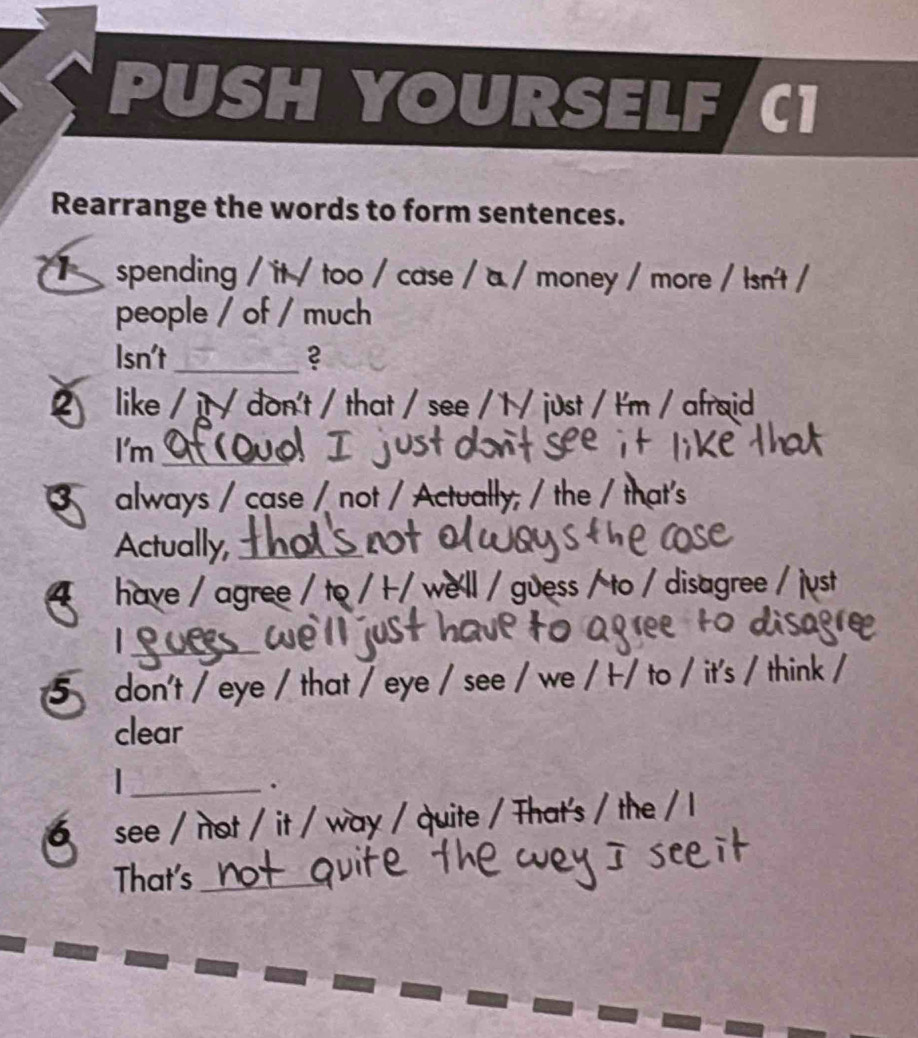 PUSH YOURSELF C1
Rearrange the words to form sentences.
1 spending / it / too / case / a / money / more / Isn't /
people / of / much
Isn't ________ ?
2 like / it / don't / that / see / I / just / I'm / afraid
I'm afraud I just don't see it like that
3 always / case / not / Actually, / the / that's
Actually, that's not always the case
4 have / agree / to / I / we'll / guess / to / disagree / just
I guess we'll just have to agree to disagree
5 don't / eye / that / eye / see / we / I / to / it's / think /
clear
I ________ .
6 see / not / it / way / quite / That's / the / I
That's not quite the wey I see it